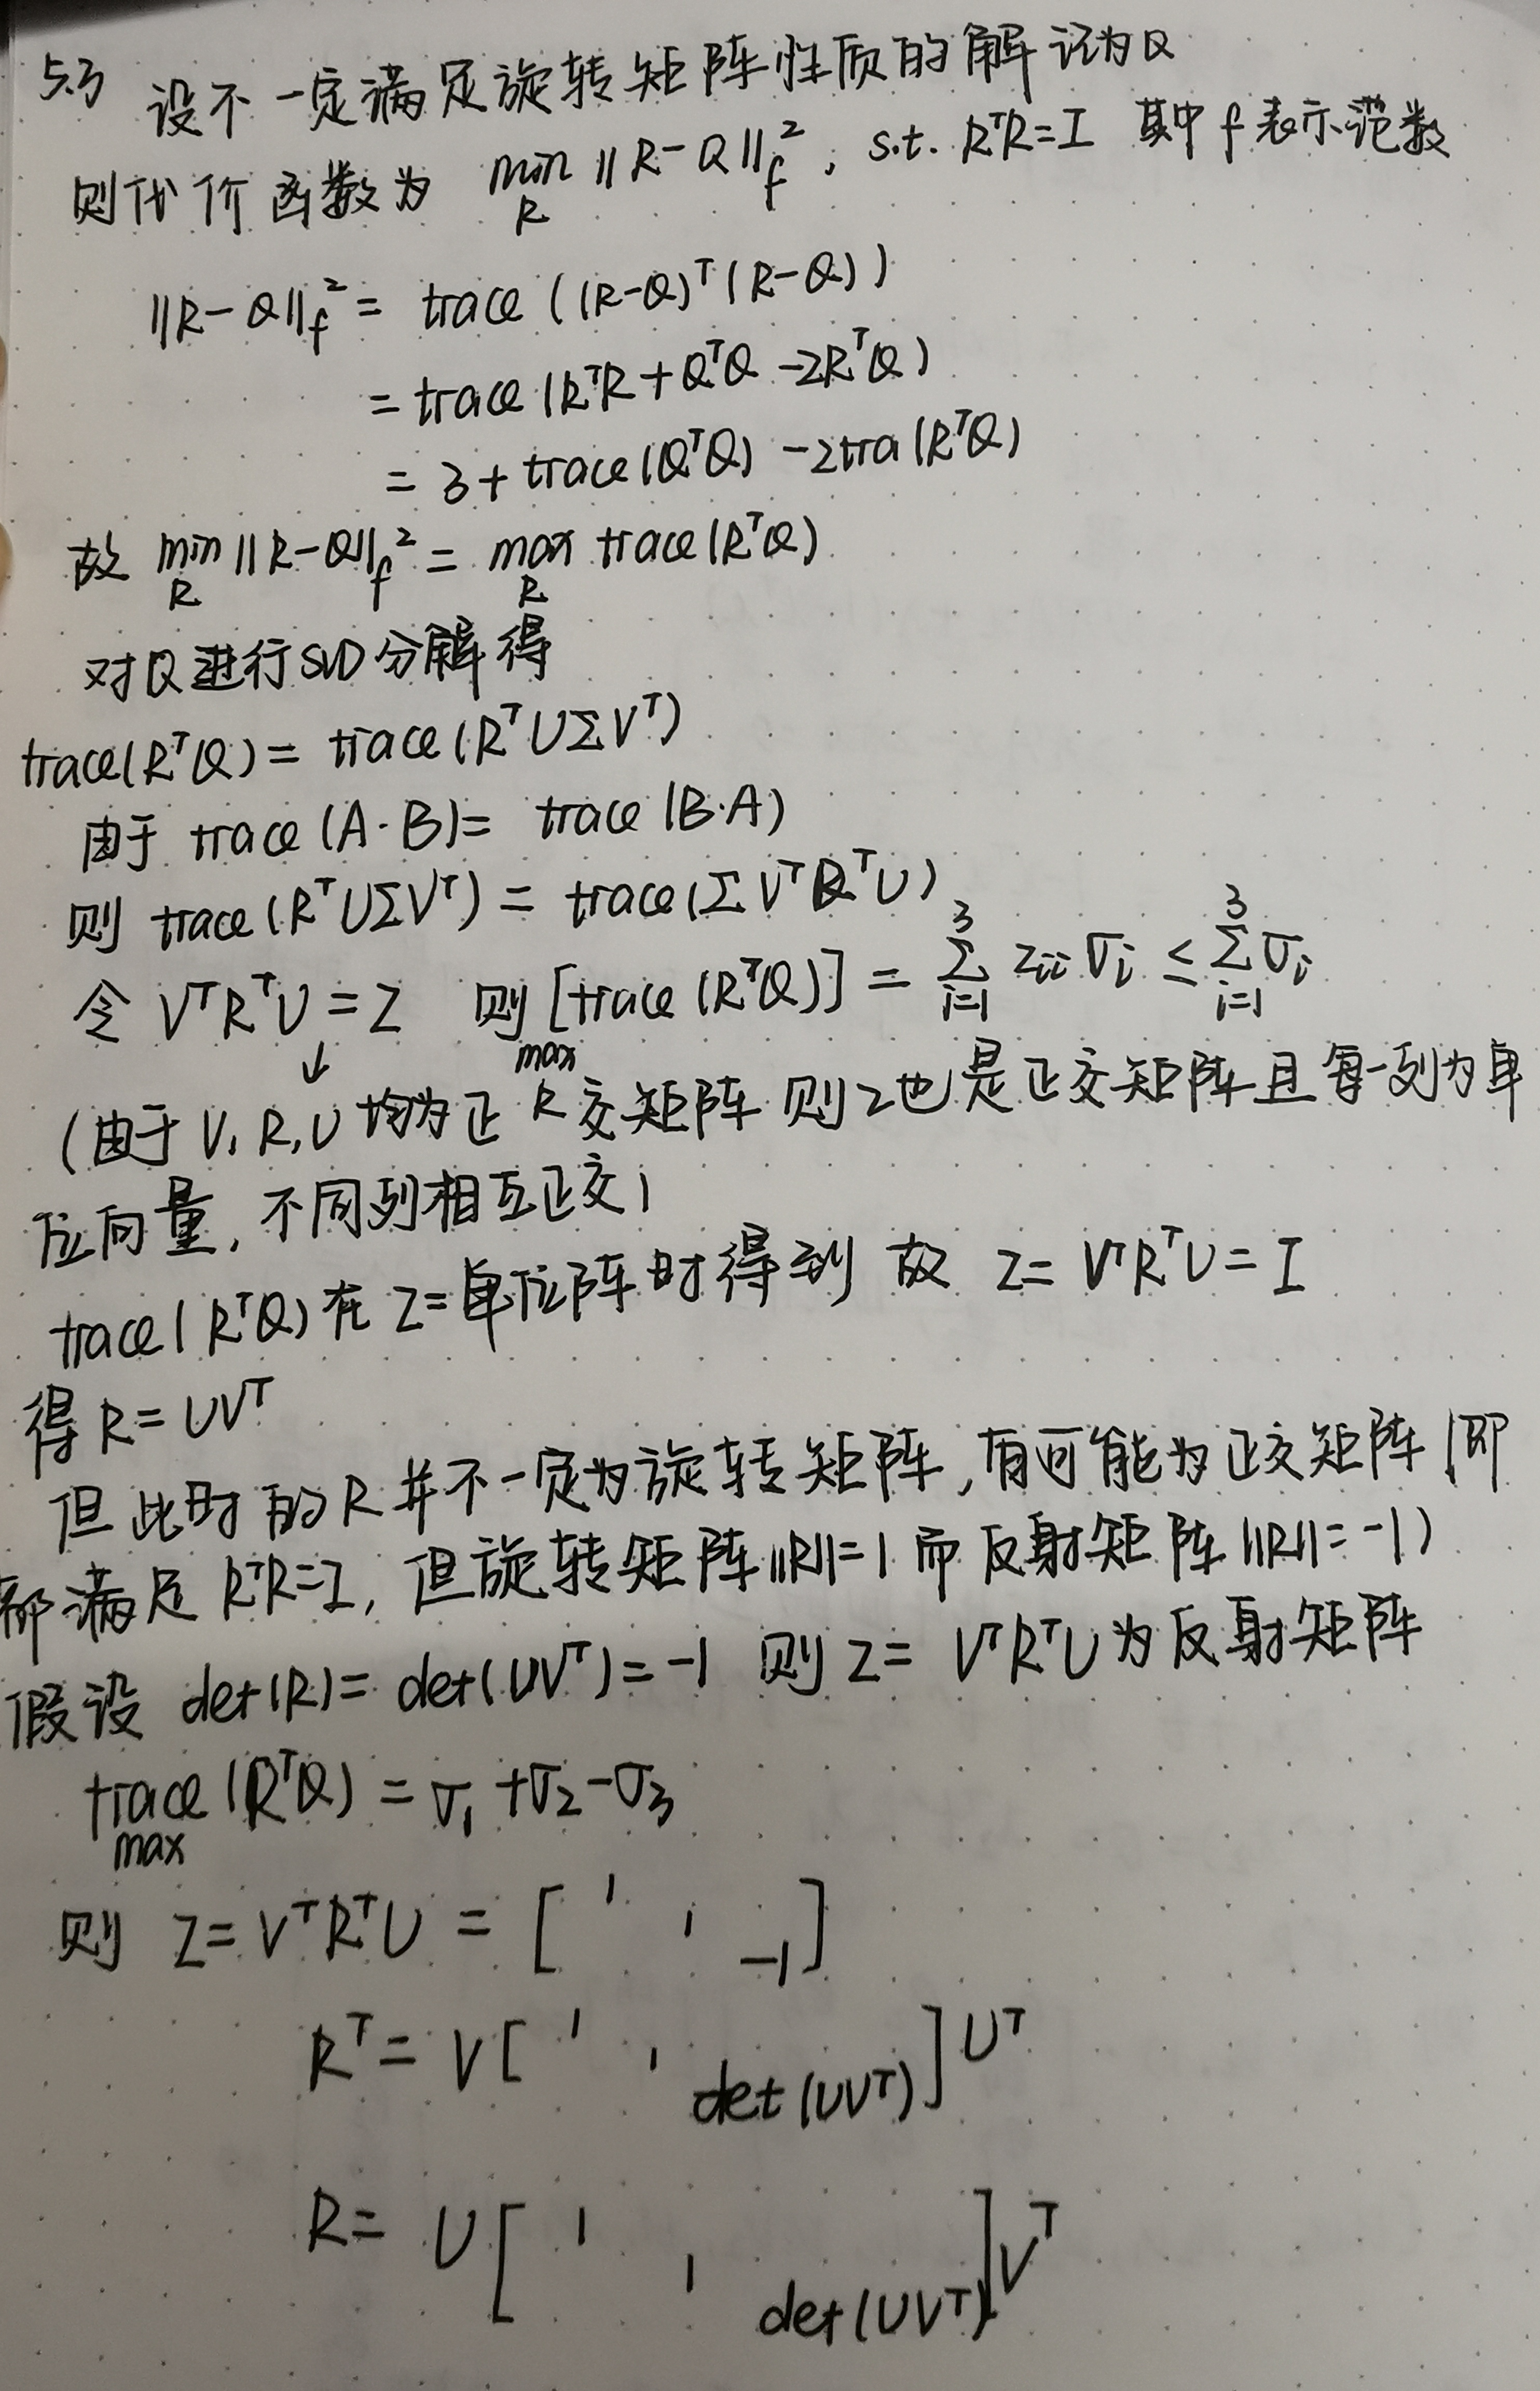 5.3 设不一定满足旋转矩阵性质的解记为Q
则代价函数为 min_R ||R-Q||_f^2, s.t. R^TR=I 其中f表示范数
||R-Q||_f^2 = trace((R-Q)^T(R-Q))
= trace(R^TR+Q^TQ-2R^TQ)
= 3+trace(Q^TQ)-2tra(R^TQ)
故 min_R ||R-Q||_f^2 = max_R trace(R^TQ)
对Q进行SVD分解得
trace(R^TQ) = trace(R^TUΣV^T)
由于 trace(A·B) = trace(B·A)
则 trace(R^TUΣV^T) = trace(ΣV^TR^TU)
令 V^TR^TU=Z 则 [trace(R^TQ)]_{max R} = Σ_{i=1}^{3} z_{ii}σ_i ≤ Σ_{i=1}^{3} σ_i
↓
(由于V,R,U均为正交矩阵 则Z也是正交矩阵且每一列为单
位向量,不同列相互正交)
trace(R^TQ)在Z=单位阵时得到 故 Z=V^TR^TU=I
得R=UV^T
但此时的R并不一定为旋转矩阵,有可能为正交矩阵(即
都满足R^TR=I,但旋转矩阵||R||=1而反射矩阵||R||=-1)
假设 det(R)=det(UV^T)=-1 则Z=V^TR^TU为反射矩阵
trace_max(R^TQ) = σ_1+σ_2-σ_3
则 Z=V^TR^TU = [1 1 -1]
R^T = V[1 1 det(UV^T)]U^T
R = U[1 1 det(UV^T)]V^T